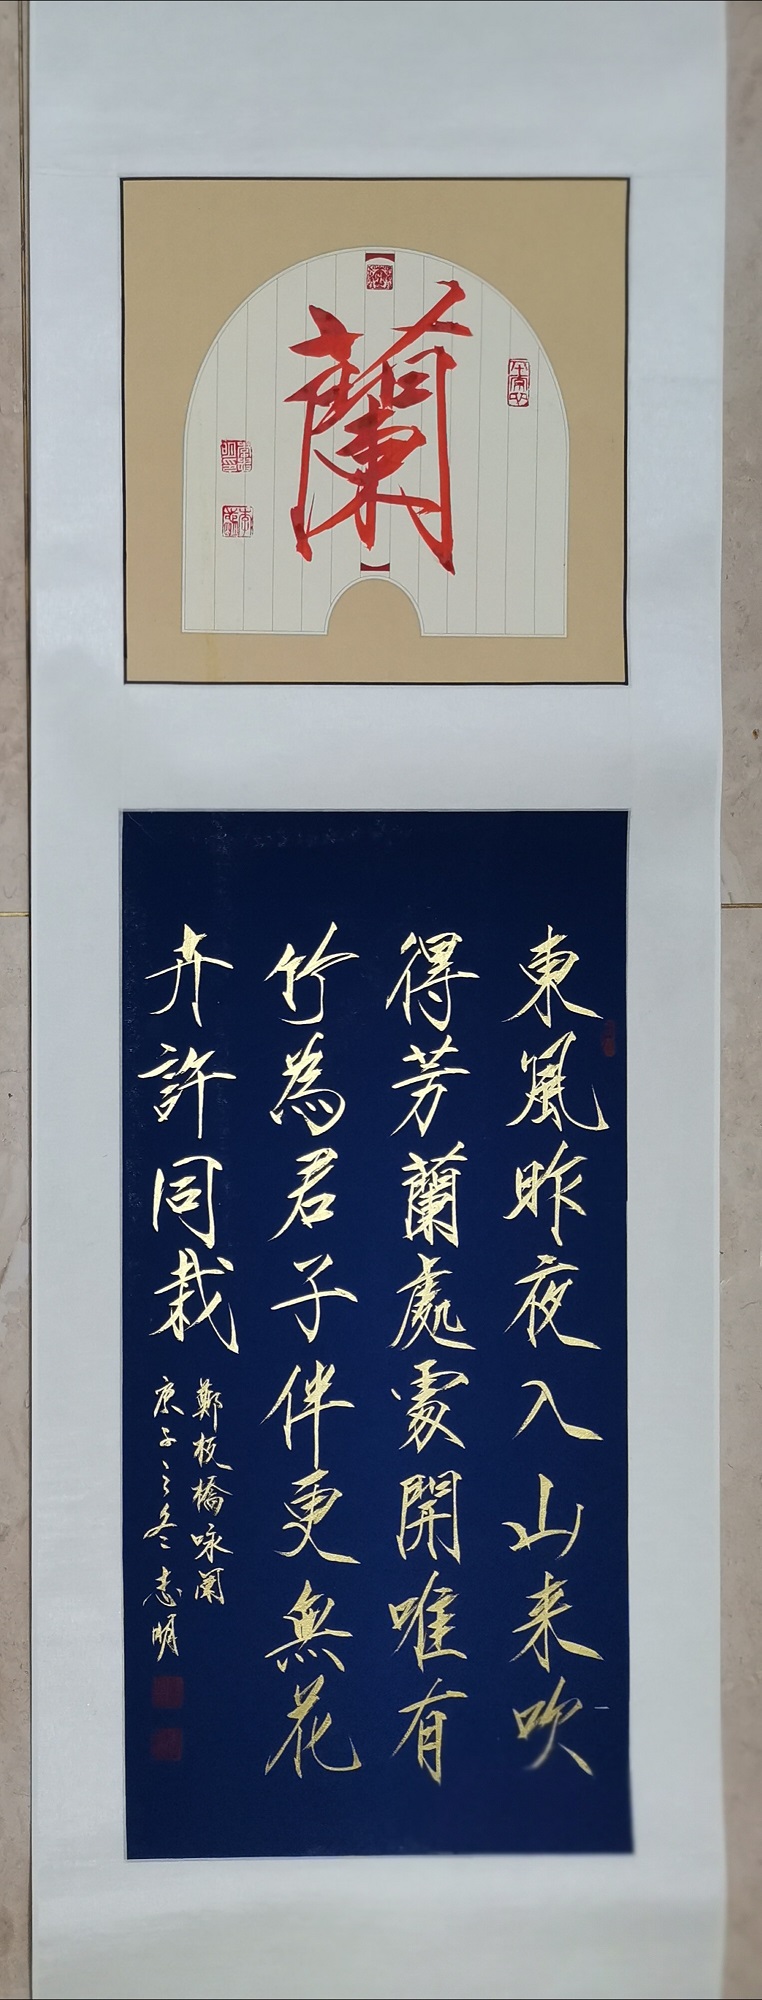 蘭
東風昨夜入山来吹
得芳蘭處處開唯有
竹為君子伴更無花
卉許同栽
鄭板橋咏蘭
庚子之冬志明